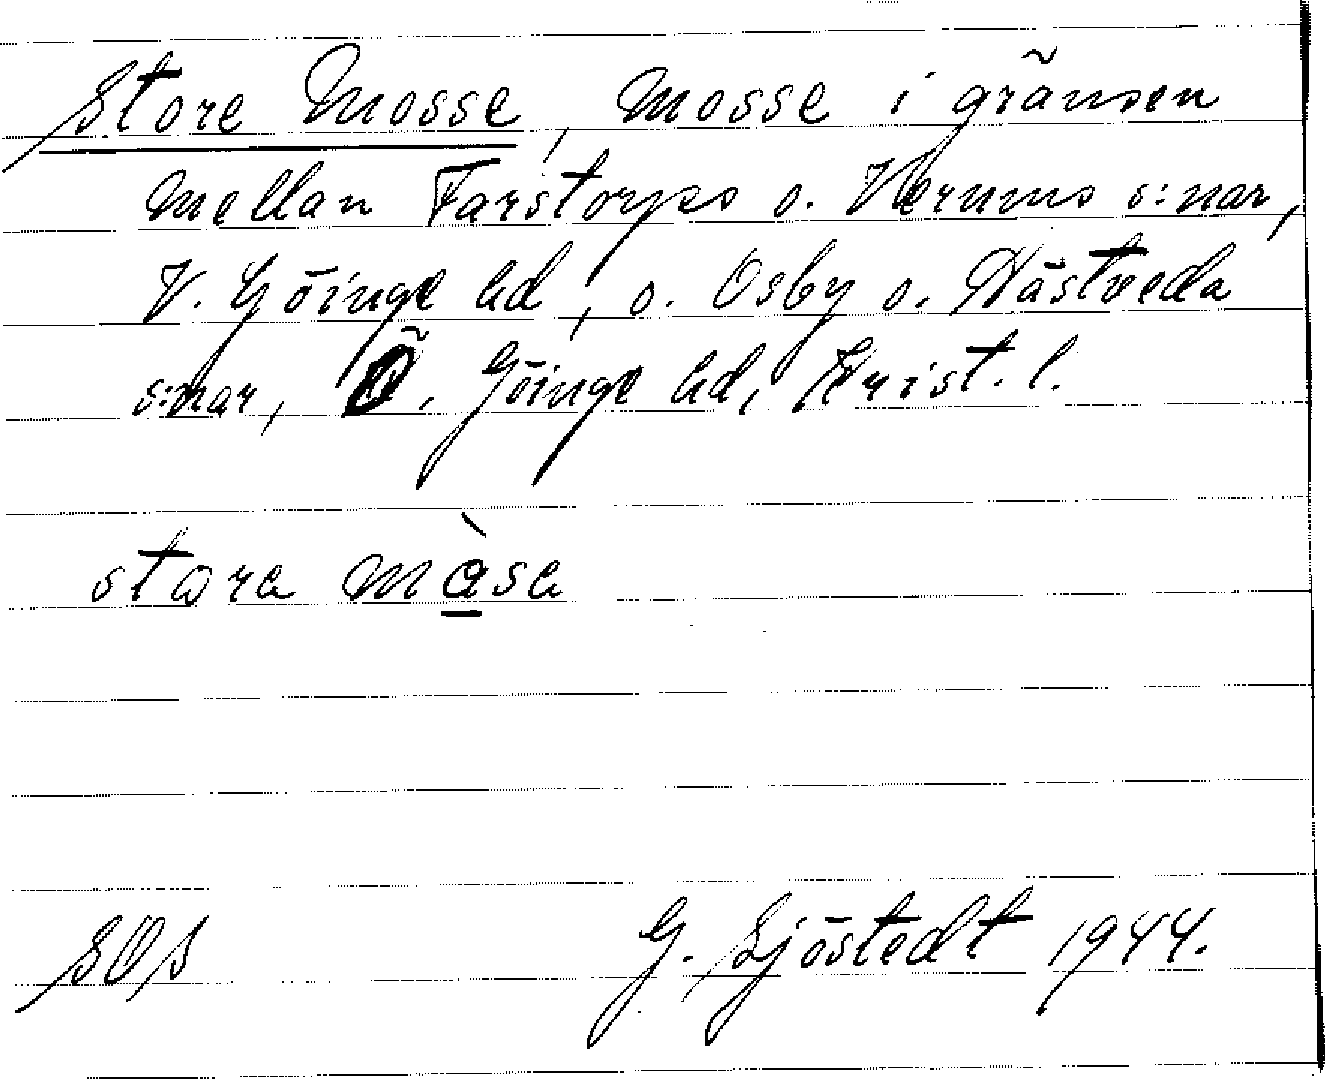 Store Mosse, mosse i gränsen
mellan Farstorps o. Verums s:nar,
V. Göinge hd, o. Osby o. Hästveda
s:nar, Ö. Göinge hd, Krist. l.
stora mòsa
SOS G. Sjöstedt 1944.